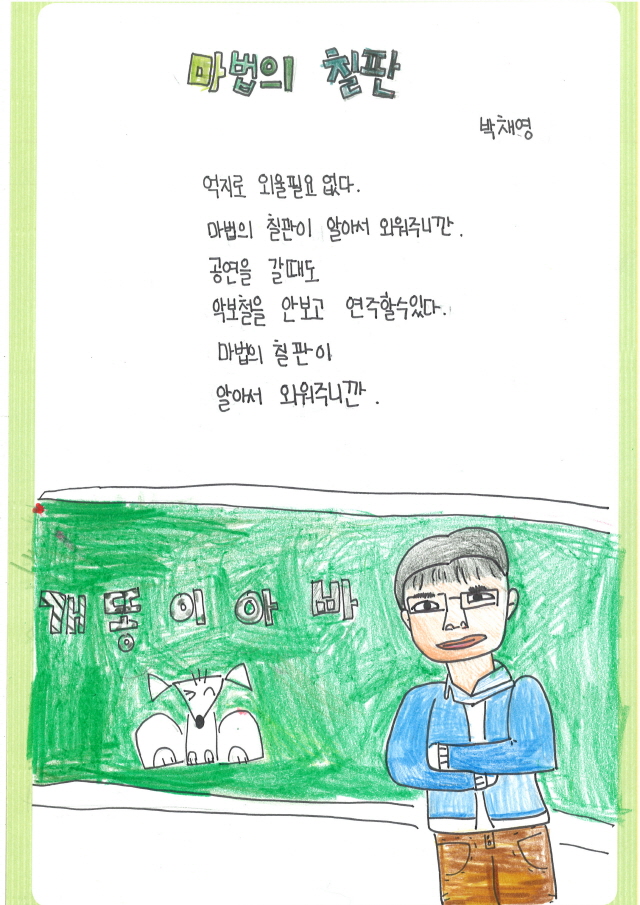 마법의 칠판
박채영
억지로 외울필요 없다.
마법의 칠판이 알아서 와워주니깐.
공연을 갈때도
악보철을 안보고 연주할수있다.
마법의 칠판이
알아서 와워주니깐.
개똥이아빠